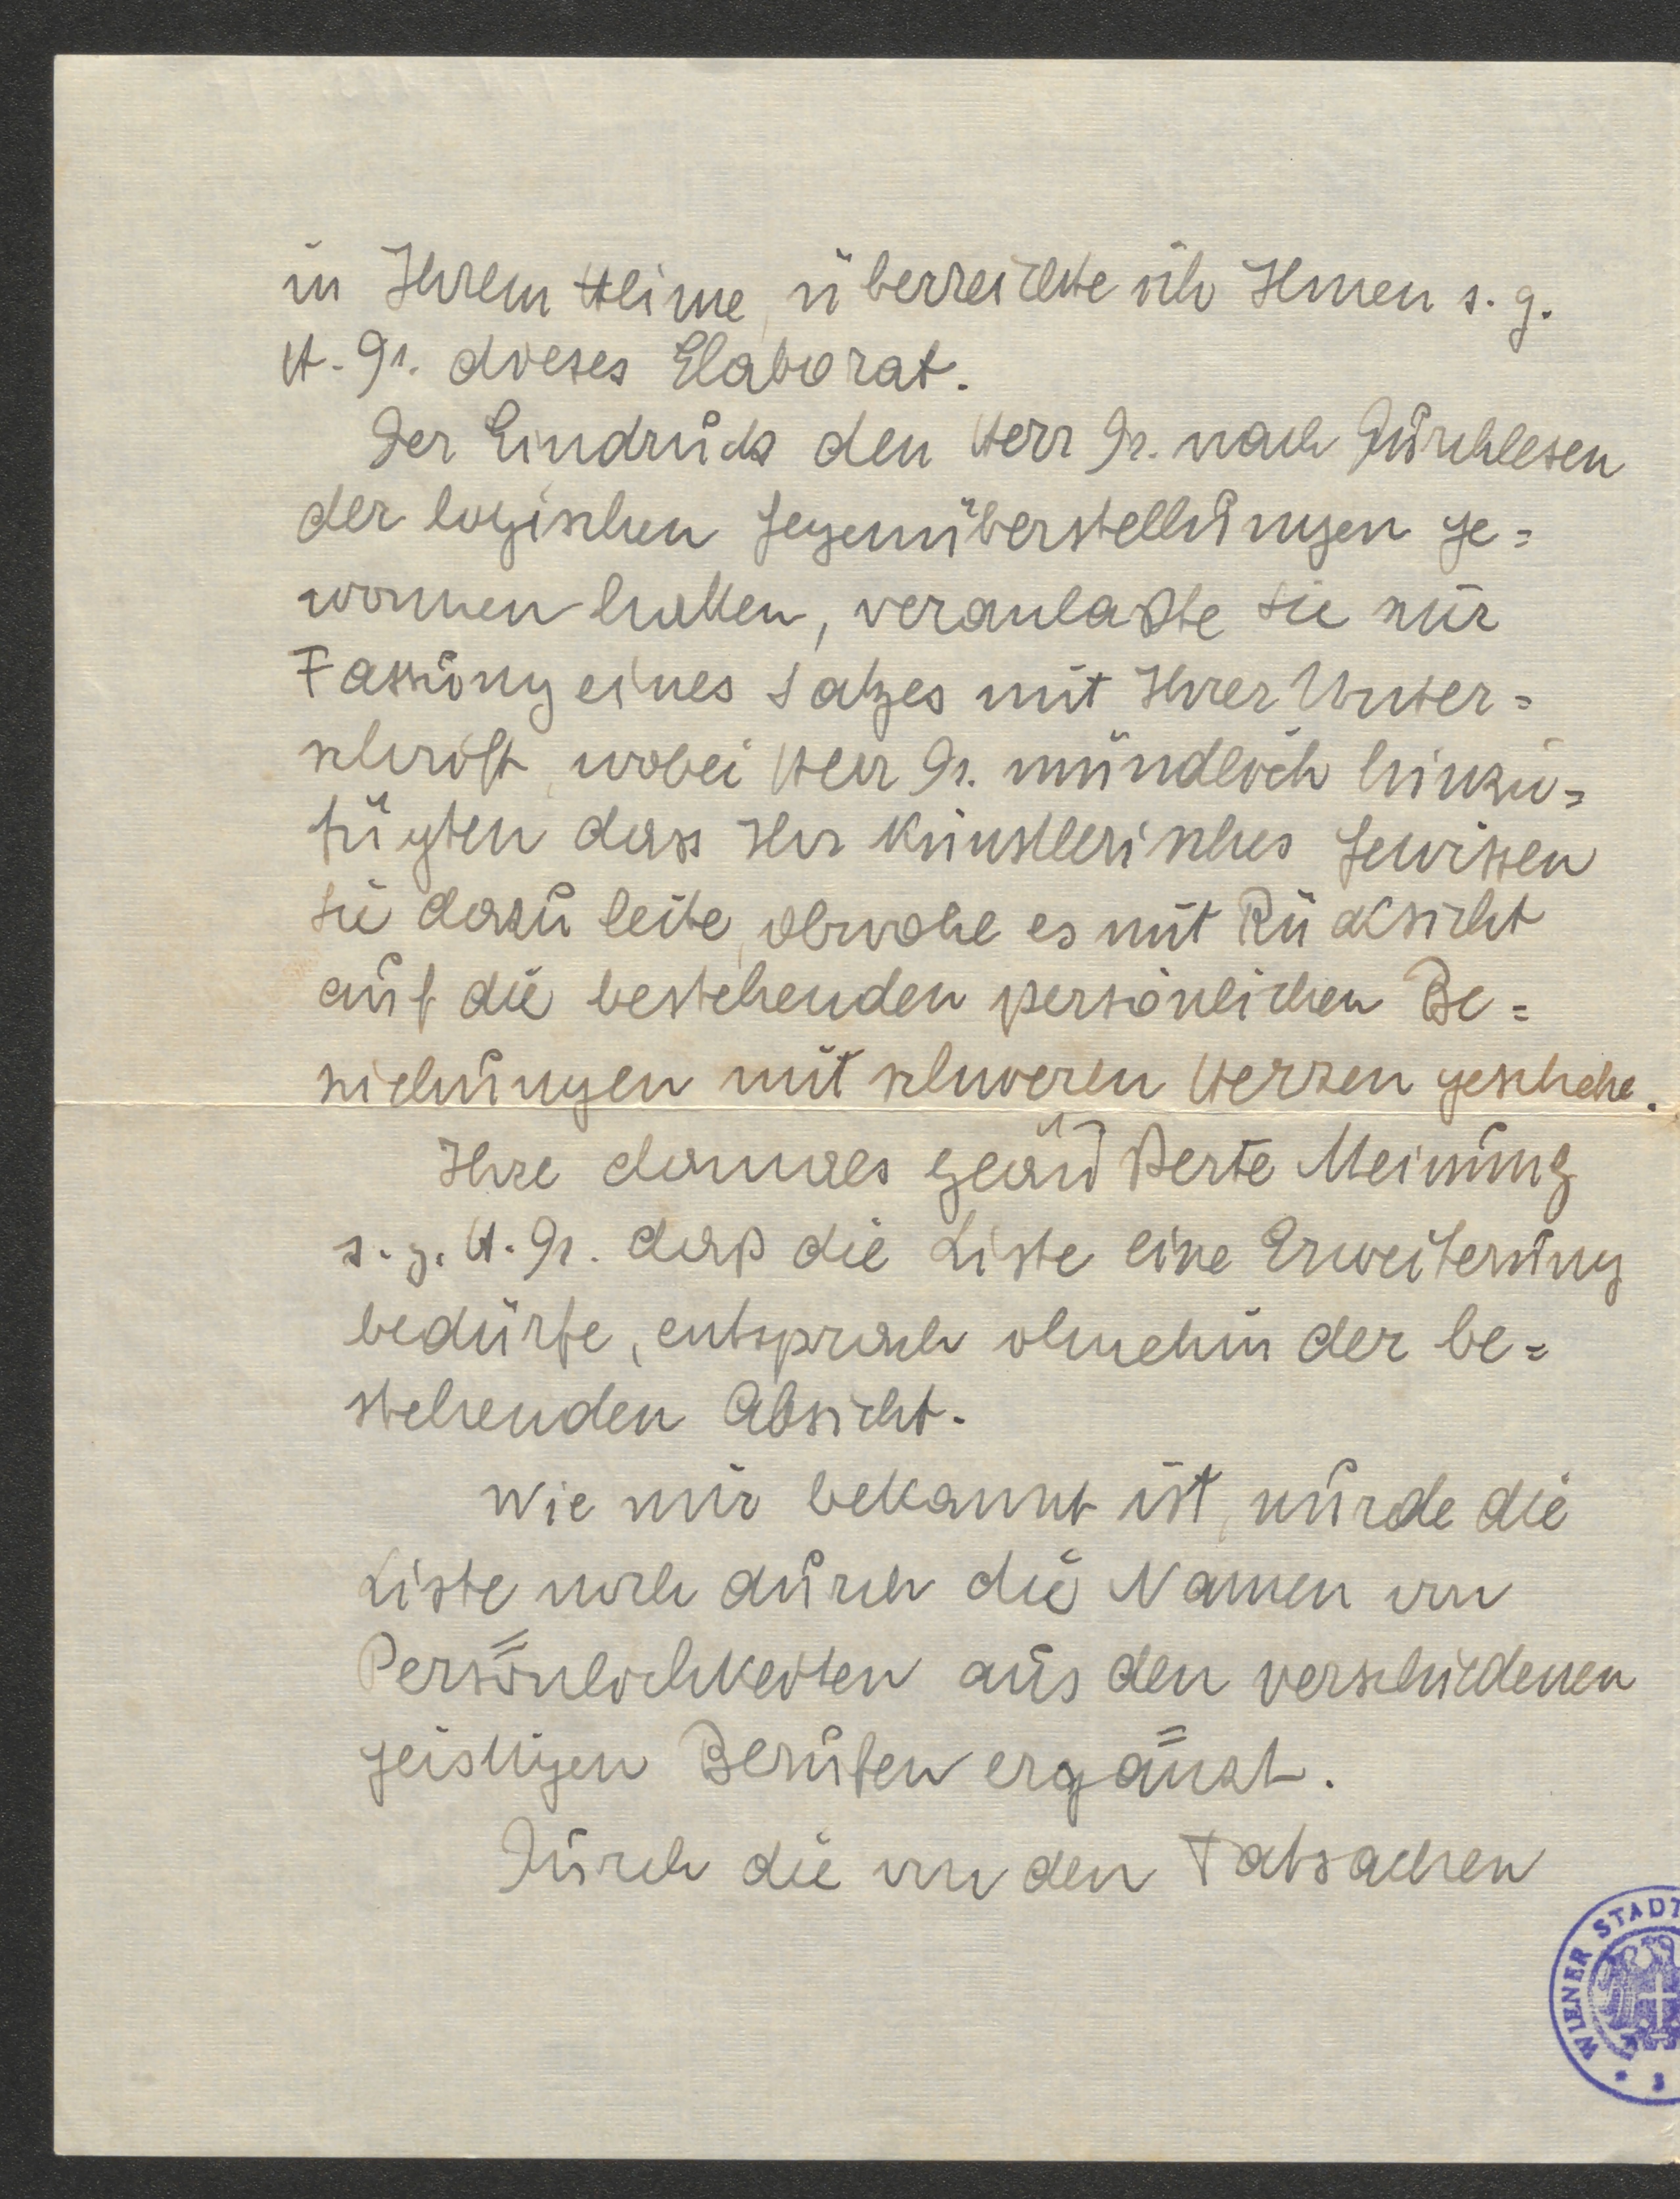 in Ihrem Heime, überreichte ich Ihnen s. g.
H. Dr. dieses Elaborat.
Der Eindruck den Herr Dr. nach Durchlesen
der logischen Gegenüberstellungen ge=
wonnen hatten, veranlaßte Sie zur
Fassung eines Satzes mit Ihrer Unter=
schrift, wobei Herr Dr. mündlich hinzu=
fügten dass Ihr künstlerisches Gewissen
Sie dazu leite, obwohl es mit Rücksicht
auf die bestehenden persönlichen Be=
ziehungen mit schweren Herzen geschehe.
Ihre damals geäußerte Meinung
s. g. H. Dr. daß die Liste eine Erweiterung
bedürfe, entsprach ohnehin der be=
stehenden Absicht.
Wie mir bekannt ist, wurde die
Liste noch durch die Namen von
Persönlichkeiten aus den verschiedenen
geistigen Berufen ergänzt.
Durch die von den Tatsachen
WIENER STADT